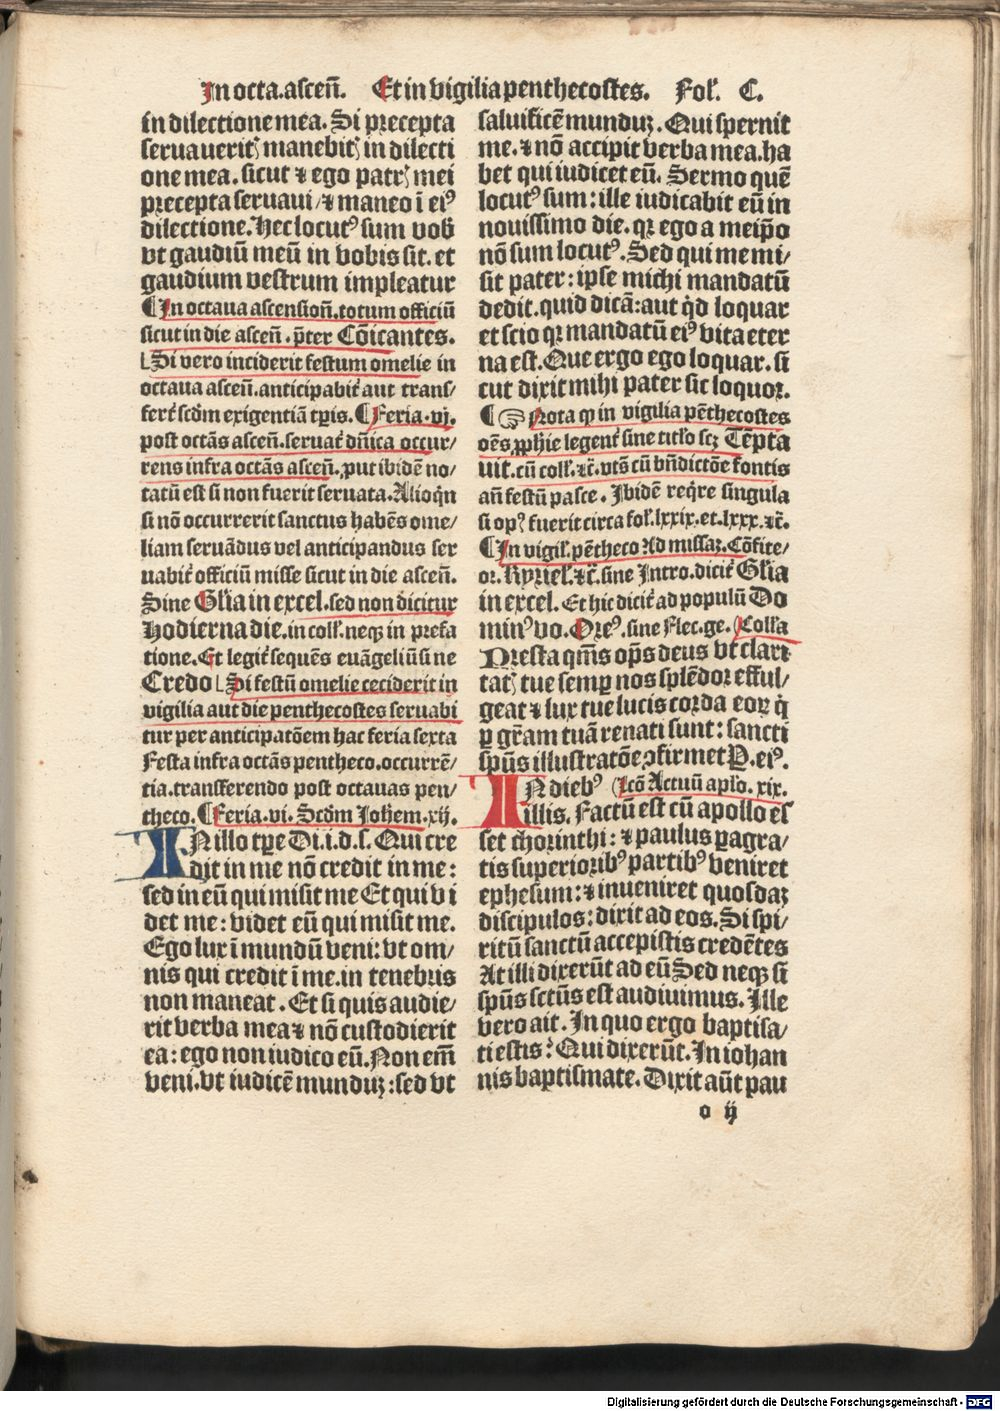 In octa.asceñ. Et in vigilia penthecostes. Fol. C.
in dilectione mea. Si precepta
seruaueritꝭ manebitꝭ in dilecti
one mea. sicut ⁊ ego patrꝭ mei
precepta seruaui/⁊ maneo ī eiꝰ
dilectione. Hec locutꝰ sum vob̄
vt gaudiū meū in vobis sit. et
gaudium vestrum impleatur
¶ In octaua ascensioñ. totum officiū
sicut in die asceñ. p̄ter Cōicantes.
Si vero inciderit festum omelie in
octaua asceñ. anticipabit᷑ aut trans/
fert᷑ scd̄m exigentiā tꝑis. ¶ Feria. vj.
post octās asceñ. seruat᷑ dn̄ica occur/
rens infra octās asceñ. ꝓut ibidē no/
tatū est si non fuerit seruata. Alioqͥn
si nō occurrerit sanctus habēs ome/
liam seruādus vel anticipandus ser
uabit᷑ officiū misse sicut in die asceñ.
Sine Gl̄ia in excel. sed non dicitur
Hodierna die. in coll̄. neqꝫ in prefa
tione. Et legit᷑ sequēs euāgeliū sine
Credo Si festū omelie ceciderit in
vigilia aut die penthecostes seruabi
tur per anticipatōem hac feria sexta
Festa infra octās pentheco. occurrē/
tia. transferendo post octauas pen/
theco. ¶ Feria. vi. Scd̄m Joh̄em. xij.
IN illo tꝑe Di. i. d. s. Qui cre
dit in me nō credit in me:
sed in eū qui misit me Et qui vi
det me: videt eū qui misit me.
Ego lux ī mundū veni: vt om/
nis qui credit ī me. in tenebris
non maneat. Et si quis audie/
rit verba mea ⁊ nō custodierit
ea: ego non iudico eū. Non em̄
veni. vt iudicē munduꝫ: sed vt
saluificē munduꝫ. Qui spernit
me. ⁊ nō accipit verba mea. ha
bet qui iudicet eū. Sermo quē
locutꝰ sum: ille iudicabit eū in
nouissimo die. qꝛ ego a meip̄o
nō sum locutꝰ. Sed qui me mi/
sit pater: ipse michi mandatū
dedit. quid dicā: aut qͥd loquar
et scio qꝛ mandatū eiꝰ vita eter
na est. Que ergo ego loquar. si
cut dixit mihi pater sic loquor.
¶ ☞ Nota ꝙ in vigilia pēthecostes
oēs ꝓphie legent᷑ sine titl̄o scꝫ Tēpta
uit. cū coll̄. ⁊c̄. vts̄ cū bn̄dictōe fontis
añ festū pasce. Ibidē reqͥre singula
si opꝰ fuerit circa fol̄. lxxix. et. lxxx. ⁊c̄.
¶ In vigil̄. pētheco Ad missaꝫ. Cōfite/
or. Kyriel̄. ⁊c̄. sine Intro. dicit᷑ Gl̄ia
in excel. Et hic dicit᷑ ad populū Do
minꝰ vo. Oreꝰ. sine Flec. ge. Coll̄a
Presta qm̄s op̄s deus vt clari
tatꝭ tue semꝑ nos splēdor efful/
geat ⁊ lux tue lucis corda eoꝝ qͥ
ꝑ gr̄am tuā renati sunt: sancti
sp̄us illustratōe ꝯfirmet P. eiꝰ.
IN diebꝰ Lcō Actuū apl̄o. xix.
illis. Factū est cū apollo es
set chorinthi: ⁊ paulus ꝑagra/
tis superioribꝰ partibꝰ veniret
ephesum: ⁊ inueniret quosdaꝫ
discipulos: dixit ad eos. Si spi/
ritū sanctū accepistis credētes
At illi dixerūt ad eū Sed neqꝫ si
sp̄us sctūs est audiuimus. Ille
vero ait. In quo ergo baptisa/
ti estis? Qui dixerūt. In iohan
nis baptismate. Dixit aūt pau
o ij
Digitalisierung gefördert durch die Deutsche Forschungsgemeinschaft - DFG